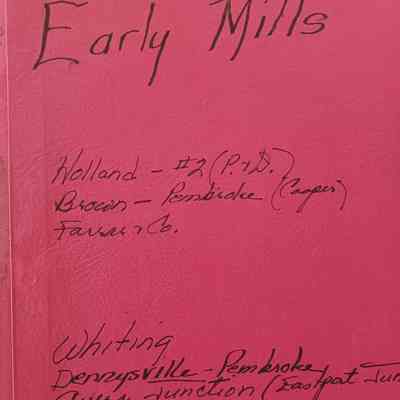 Early Mills
Holland - #2 (P. & D.)
Brown - Pembroke (Cooper)
Farrar & Co.
Whiting
Dennysville - Pembroke
Junction (Eastpat Jun